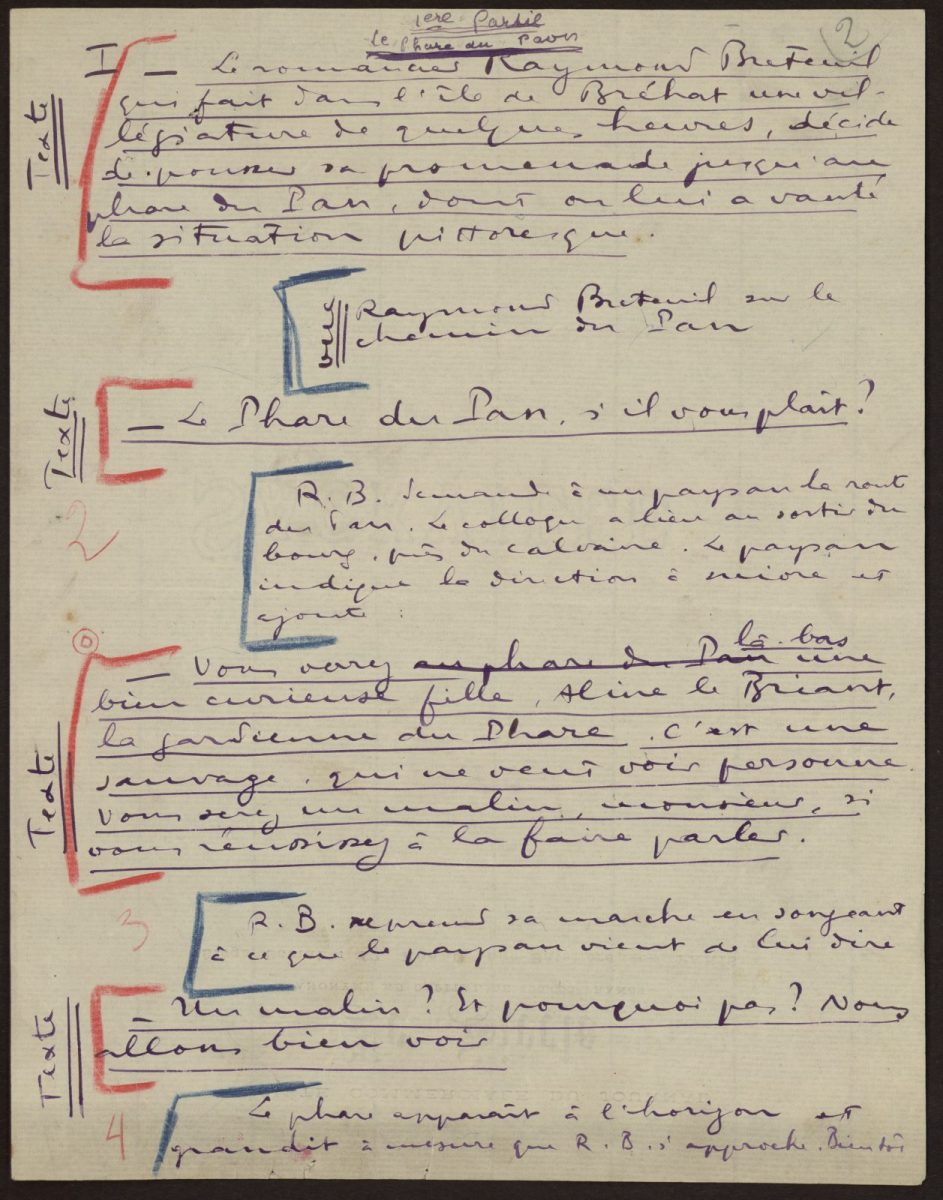 1ere Partie
Le Phare du Paon
2
I — Le romancier Raymond Breteuil
qui fait dans l'île de Bréhat une vil-
légiature de quelques heures, décide
de pousser sa promenade jusqu'au
phare du Pan, dont on lui a vanté
la situation pittoresque.
Texte
vue
Raymond Breteuil sur le
chemin du Pan
Texte
— Le Phare du Pan, s'il vous plaît?
2
R. B. demande à un paysan la route
du Pan. Le colloque a lieu au sortir du
bourg, près du calvaire. Le paysan
indique la direction à suivre et
ajoute :
0
là-bas
— Vous verrez au phare du Pan une
bien curieuse fille, Aline le Briant,
la gardienne du Phare. C'est une
sauvage, qui ne veut voir personne.
Vous serez un malin, monsieur, si
vous réussissez à la faire parler.
Texte
3
R. B. reprend sa marche en songeant
à ce que le paysan vient de lui dire
Texte
— Un malin? Et pourquoi pas? Nous
allons bien voir
4
Le phare apparaît à l'horizon et
grandit à mesure que R. B. s'approche. Bientôt